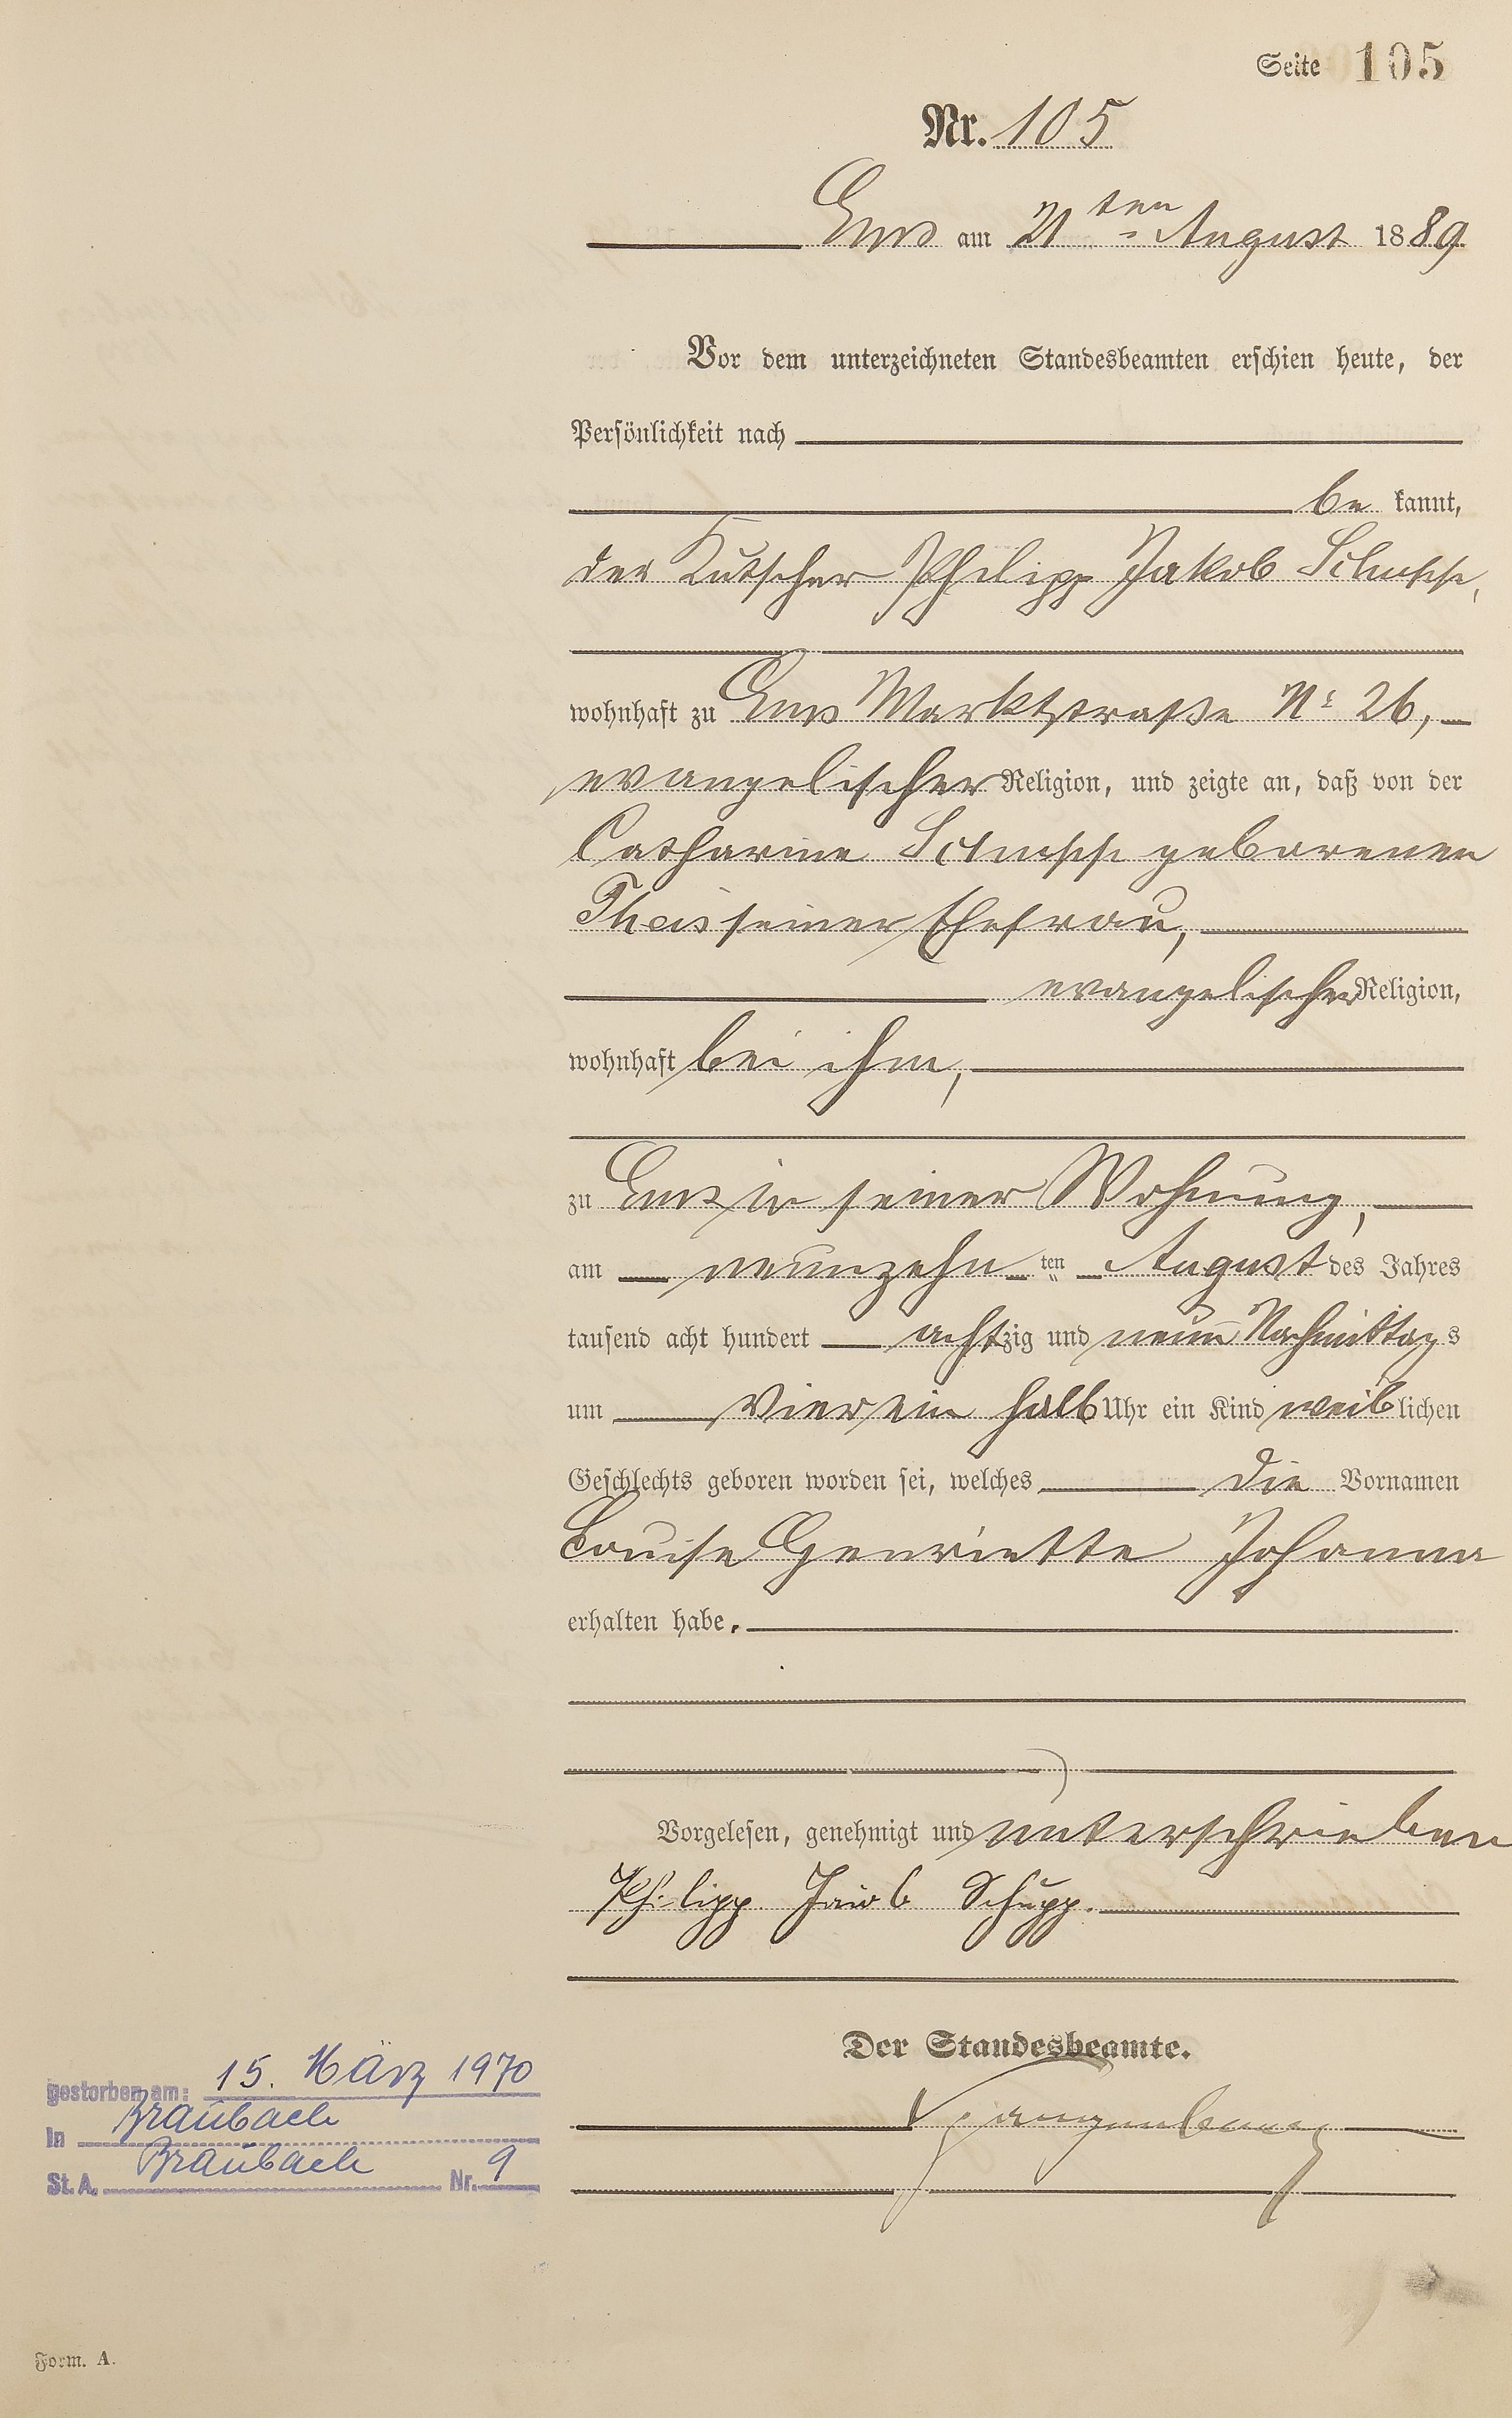 Seite 105
Nr. 105
Ems am 21ten August 1889
Vor dem unterzeichneten Standesbeamten erschien heute, der
Persönlichkeit nach
be kannt,
der Kutscher Philipp Jakob Schupp,
wohnhaft zu Ems Marktstraße No 26,
evangelischer Religion, und zeigte an, daß von der
Catharine Schupp geborenen
Theis seiner Ehefrau,
evangelischer Religion,
wohnhaft bei ihm,
zu Ems in seiner Wohnung,
am neunzehn ten August des Jahres
tausend acht hundert achtzig und neun Nachmittags
um vier ein halb Uhr ein Kind weiblichen
Geschlechts geboren worden sei, welches die Vornamen
Louise Henriette Johanna
erhalten habe.
Vorgelesen, genehmigt und unterschrieben
Philipp Jacob Schupp.
Der Standesbeamte.
gestorben am: 15. März 1970
In Braubach
St. A. Braubach Nr. 9
Form. A.